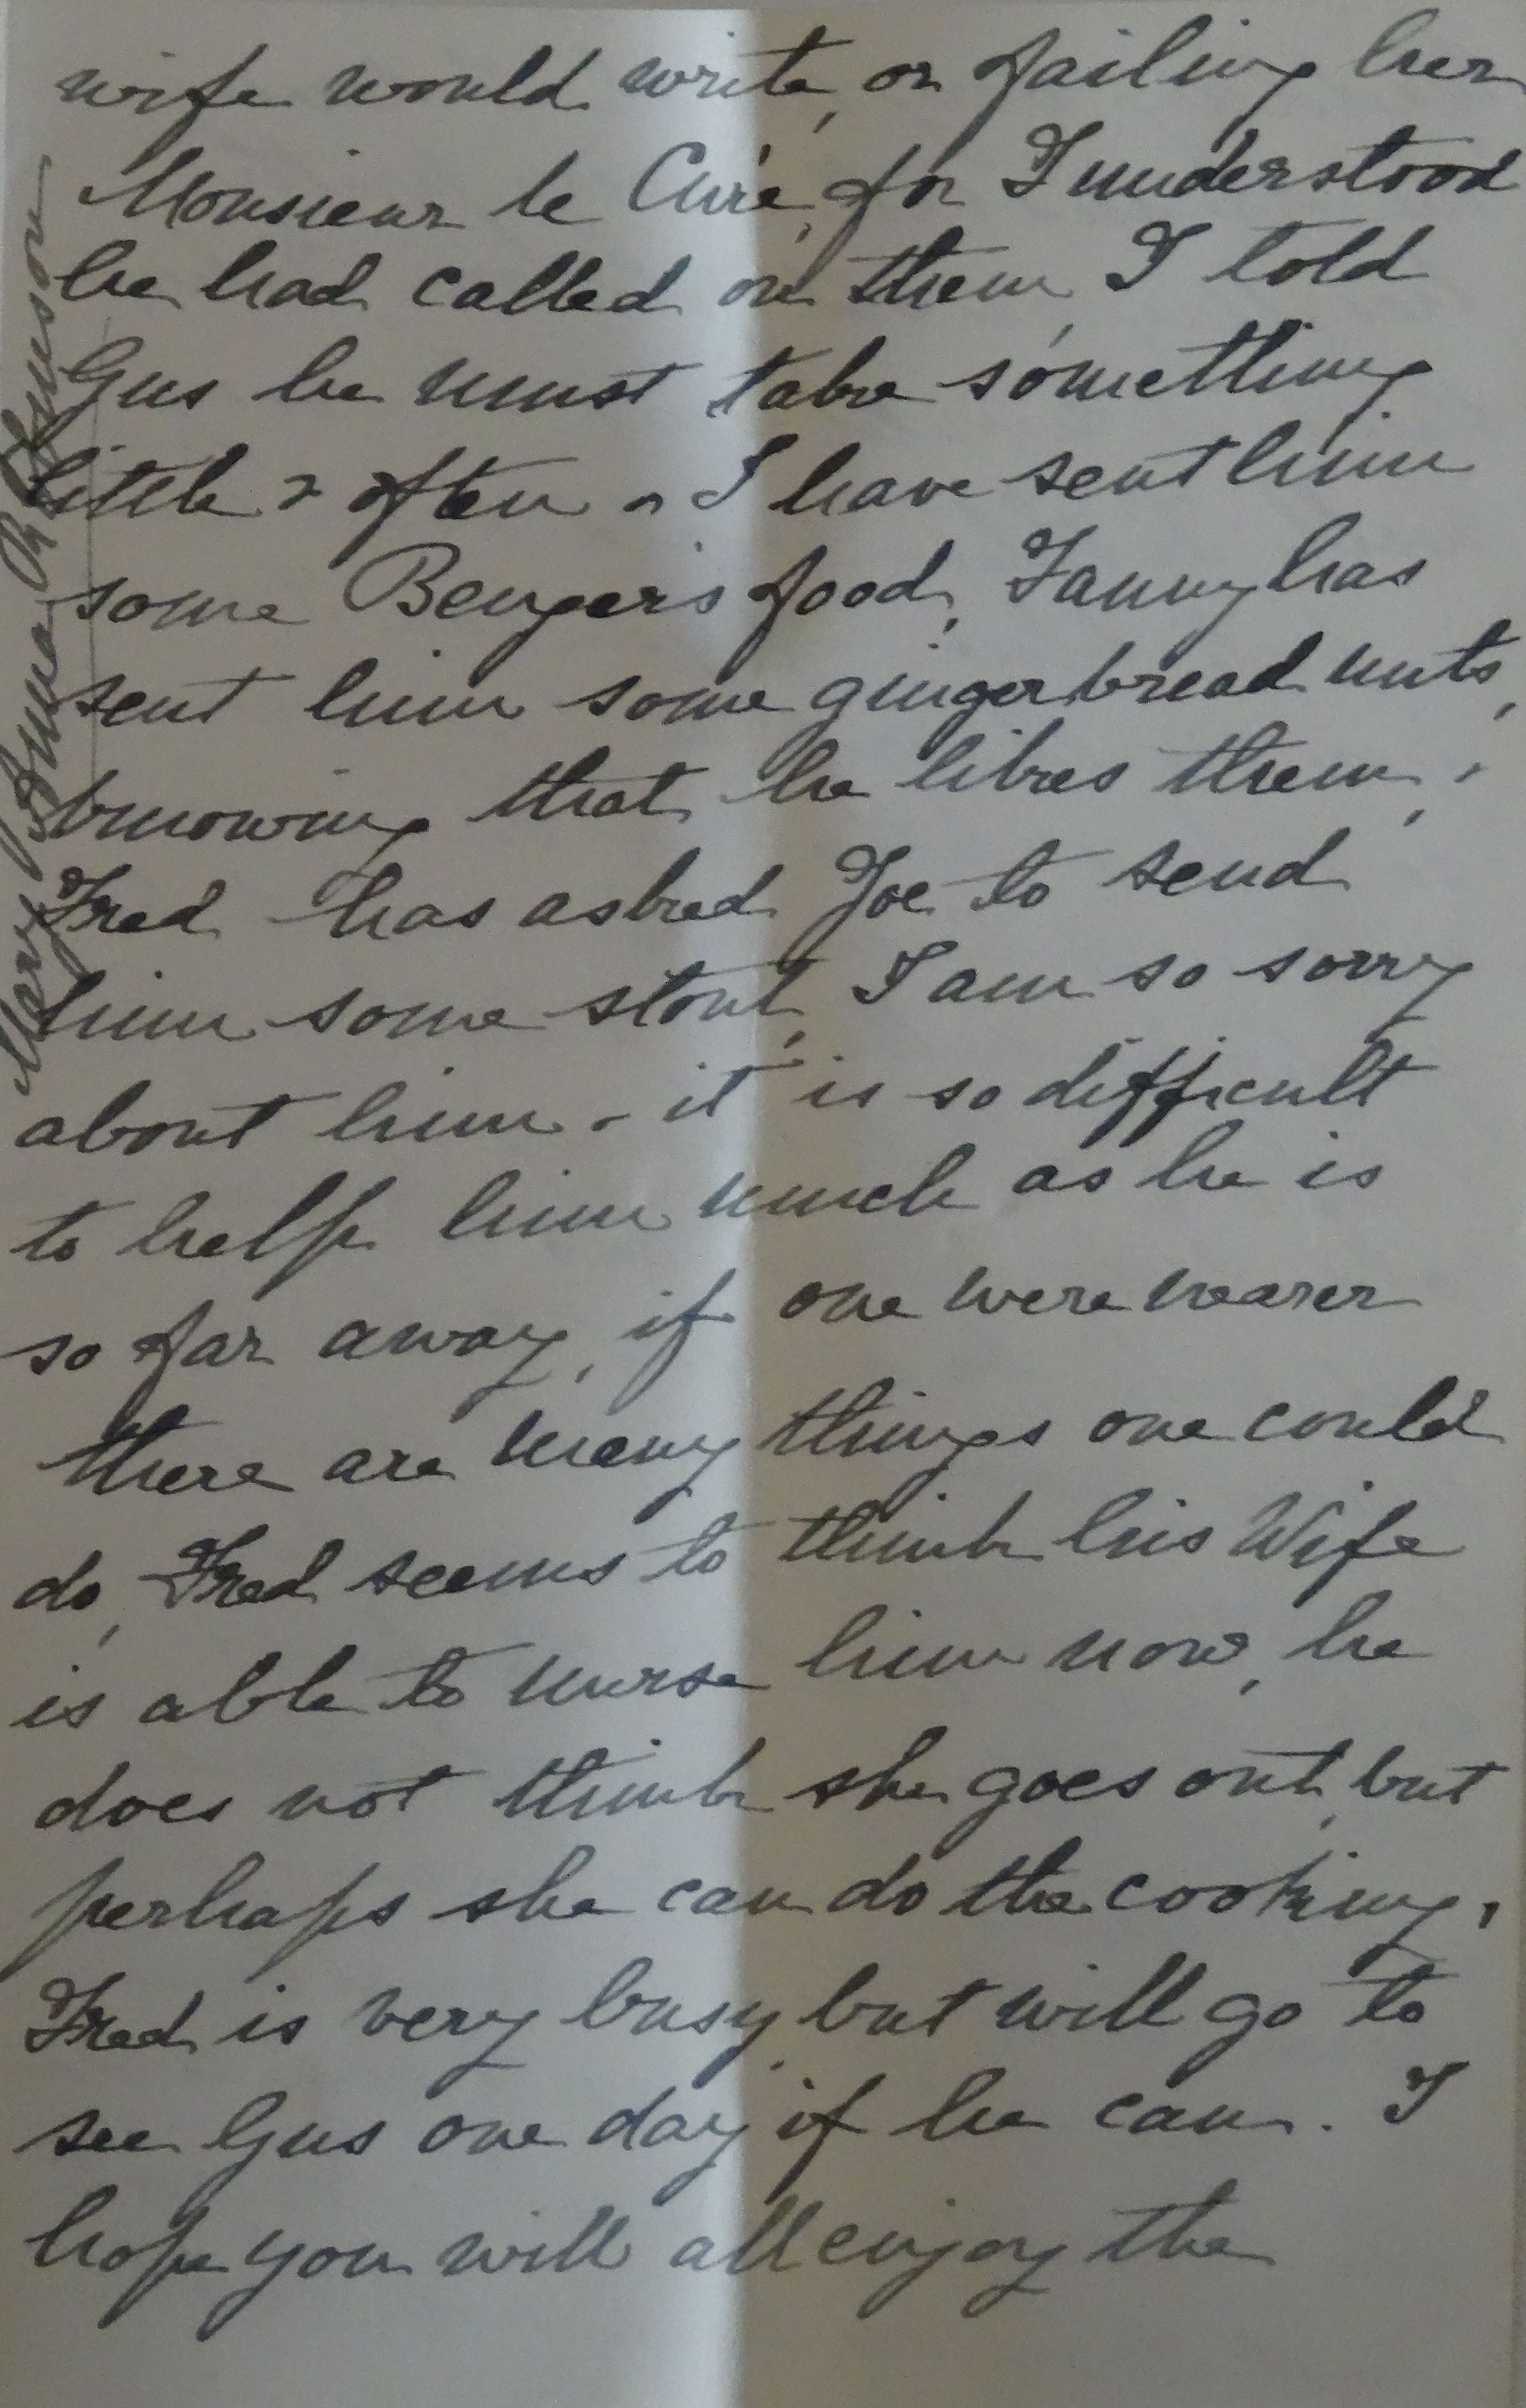 wife would write, or failing her
Monsieur le Curé, for I understood
he had called on them, I told
Gus he must take something
little & often - I have sent him
some Benger's food, Fanny has
sent him some gingerbread nuts,
knowing that he likes them,
Fred has asked Joe to send
him some stout, I am so sorry
about him - it is so difficult
to help him much as he is
so far away, if one were nearer
there are many things one could
do, Fred seems to think his Wife
is able to nurse him now, he
does not think she goes out, but
perhaps she can do the cooking,
Fred is very busy, but will go to
see Gus one day if he can. I
hope you will all enjoy the
Mary Anna